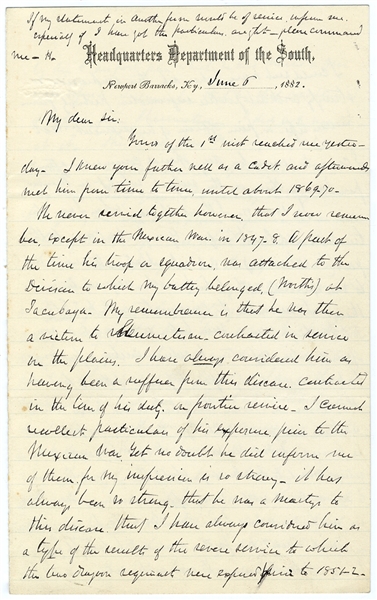 If my statement in another form would be of service inform me.
especially if I have got the particulars aright - please command
me - H.
Headquarters Department of the South,
Newport Barracks, Ky, June 6, 1882.
My dear Sir:
Yours of the 1st inst reached me yester-
day. I knew your father well as a cadet and afterwards
met him from time to time, until about 1869-70-
We never served together however, that I now remem-
ber, except in the Mexican War in 1847-8. A part of
the time his troop or squadron, was attached to the
Division to which my battery belonged, (Worth's) at
Tacubaya. My remembrance is that he was then
a victim to Rheumatism - contracted in service
on the plains. I have always considered him as
having been a sufferer from this disease, contracted
in the line of his duty, in frontier service. I cannot
recollect particulars of his exposure prior to the
Mexican War, yet no doubt he did inform me
of them, for my impression is so strong - it has
always been so strong, that he was a martyr to
this disease, that I have always considered him as
a type of the result of the severe service to which
the two dragoon regiments were exposed prior to 1851-2-